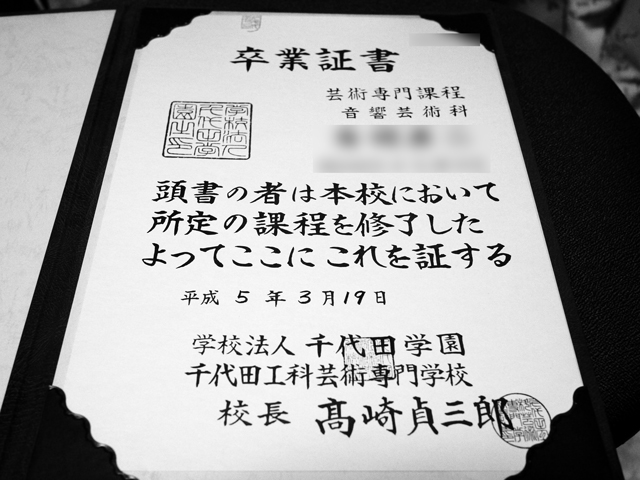 卒業証書
芸術専門課程
音響芸術科
頭書の者は本校において
所定の課程を修了した
よってここにこれを証する
平成 5 年 3 月 19 日
学校法人 千代田学園
千代田工科芸術専門学校
校長 髙崎貞三郎